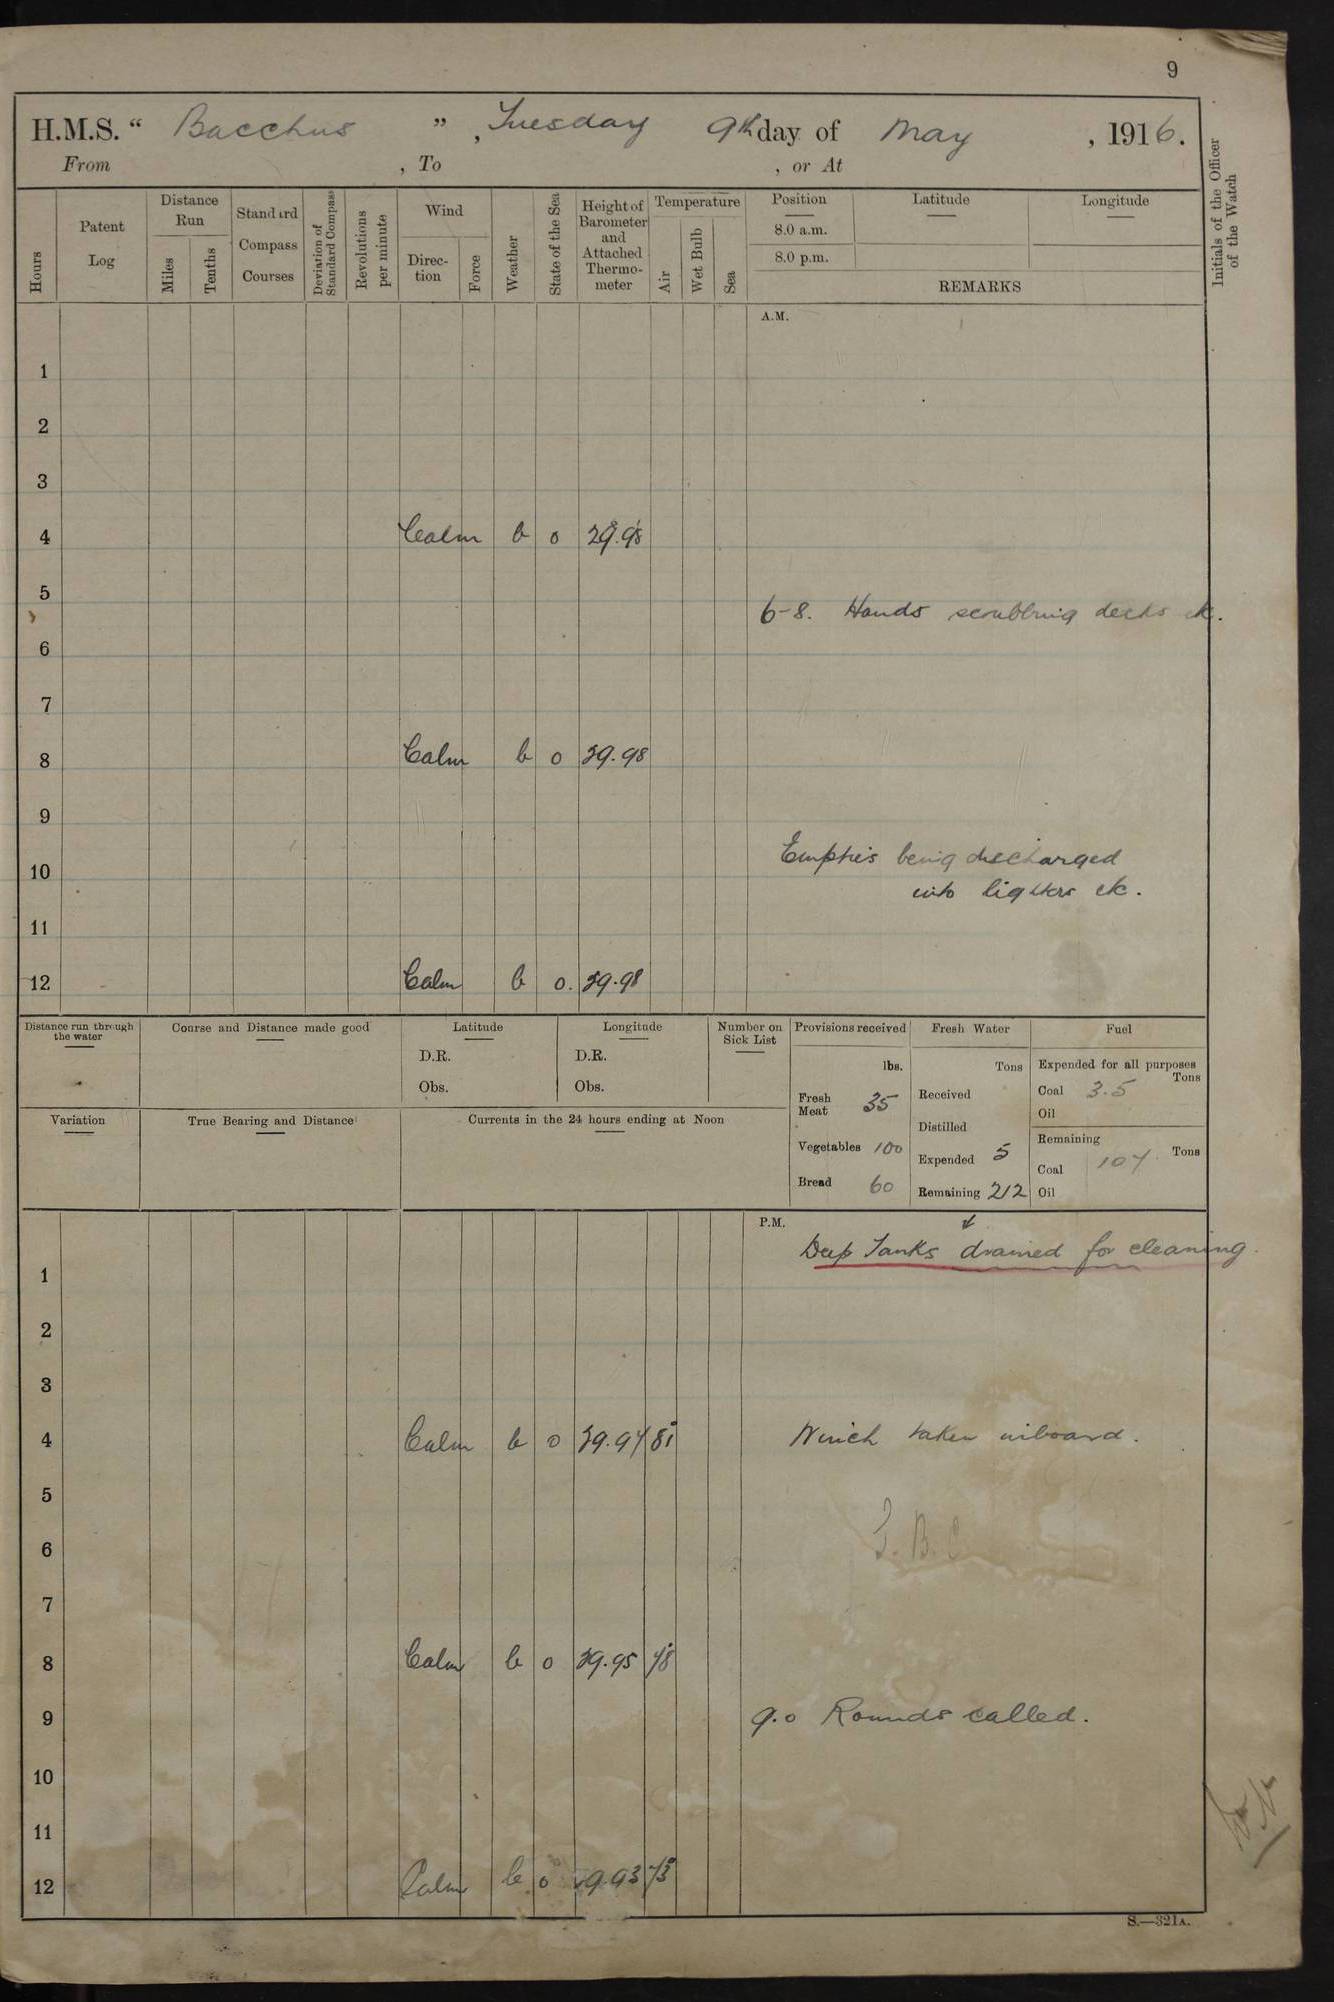 9
H.M.S. “ Bacchus ” , Tuesday 9th day of May , 1916.
From , To , or At
Hours
Patent Log
Distance Run
Miles
Tenths
Standard Compass Courses
Deviation of Standard Compass
Revolutions per minute
Wind
Direc- tion
Force
Weather
State of the Sea
Height of Barometer and Attached Thermo- meter
Temperature
Air
Wet Bulb
Sea
Position
8.0 a.m.
8.0 p.m.
Latitude
Longitude
REMARKS
Initials of the Officer of the Watch
A.M.
1
2
3
4 Calm b o 29.98
5
6-8. Hands scrubbing decks etc.
6
7
8 Calm b o 29.98
9
Empties being discharged
10
into lighters etc.
11
12 Calm b o. 29.98
Distance run through the water
Course and Distance made good
Latitude
D.R.
Obs.
Longitude
D.R.
Obs.
Number on Sick List
Provisions received
lbs.
Fresh Meat 35
Vegetables 100
Bread 60
Fresh Water
Tons
Received
Distilled
Expended 5
Remaining 212
Fuel
Expended for all purposes
Tons
Coal 3.5
Oil
Remaining
Tons
Coal 107
Oil
Variation
True Bearing and Distance
Currents in the 24 hours ending at Noon
P.M.
Deep Tanks drained for cleaning.
1
2
3
4 Calm b o 29.97 81 Winch taken inboard.
5
6
7
8 Calm b o 29.95 78
9 9.0 Rounds called.
10
11
12 Calm b o 29.93 73
S.—321A.